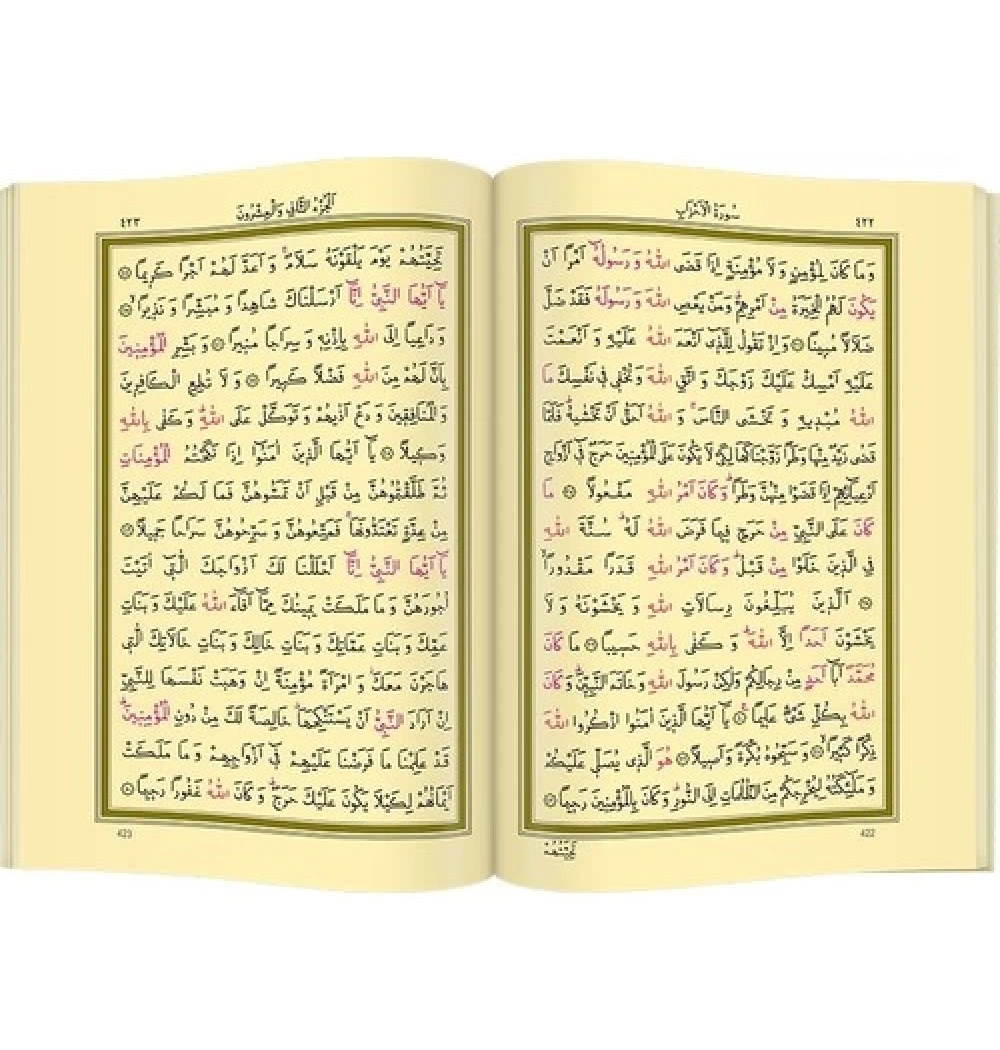 سُورَةُ الْاَحْزَابِ
٤٢٢
وَمَا كَانَ لِمُؤْمِنٍ وَلَا مُؤْمِنَةٍ اِذَا قَضَى اللّٰهُ وَرَسُولُهُٓ اَمْرًا اَنْ
يَكُونَ لَهُمُ الْخِيَرَةُ مِنْ اَمْرِهِمْ وَمَنْ يَعْصِ اللّٰهَ وَرَسُولَهُ فَقَدْ ضَلَّ
ضَلَالًا مُبِينًا ۞ وَاِذْ تَقُولُ لِلَّذِٓى اَنْعَمَ اللّٰهُ عَلَيْهِ وَاَنْعَمْتَ
عَلَيْهِ اَمْسِكْ عَلَيْكَ زَوْجَكَ وَاتَّقِ اللّٰهَ وَتُخْفِى فِى نَفْسِكَ مَا
اللّٰهُ مُبْدِيهِ وَتَخْشَى النَّاسَ وَاللّٰهُ اَحَقُّ اَنْ تَخْشٰيهُ فَلَمَّا
قَضٰى زَيْدٌ مِنْهَا وَطَرًا زَوَّجْنَاكَهَا لِكَىْ لَا يَكُونَ عَلَى الْمُؤْمِنِينَ حَرَجٌ فِٓى اَزْوَاجِ
اَدْعِيَٓائِهِمْ اِذَا قَضَوْا مِنْهُنَّ وَطَرًا وَكَانَ اَمْرُ اللّٰهِ مَفْعُولًا ۞ مَا
كَانَ عَلَى النَّبِىِّ مِنْ حَرَجٍ فِيمَا فَرَضَ اللّٰهُ لَهُ سُنَّةَ اللّٰهِ
فِى الَّذِينَ خَلَوْا مِنْ قَبْلُ وَكَانَ اَمْرُ اللّٰهِ قَدَرًا مَقْدُورًا
۞ اَلَّذِينَ يُبَلِّغُونَ رِسَالَاتِ اللّٰهِ وَيَخْشَوْنَهُ وَلَا
يَخْشَوْنَ اَحَدًا اِلَّا اللّٰهَ وَكَفٰى بِاللّٰهِ حَسِيبًا ۞ مَا كَانَ
مُحَمَّدٌ اَبَٓا اَحَدٍ مِنْ رِجَالِكُمْ وَلٰكِنْ رَسُولَ اللّٰهِ وَخَاتَمَ النَّبِيِّنَ وَكَانَ
اللّٰهُ بِكُلِّ شَىْءٍ عَلِيمًا ۞ يَٓا اَيُّهَا الَّذِينَ اٰمَنُوا اذْكُرُوا اللّٰهَ
ذِكْرًا كَثِيرًا ۞ وَسَبِّحُوهُ بُكْرَةً وَاَصِيلًا ۞ هُوَ الَّذِى يُصَلِّى عَلَيْكُمْ
وَمَلٰٓئِكَتُهُ لِيُخْرِجَكُمْ مِنَ الظُّلُمَاتِ اِلَى النُّورِ وَكَانَ بِالْمُؤْمِنِينَ رَحِيمًا ۞
422
تَحِيَّتُهُمْ
اَلْجُزْءُ الثَّانِى وَالْعِشْرُونَ
٤٢٣
تَحِيَّتُهُمْ يَوْمَ يَلْقَوْنَهُ سَلَامٌ وَاَعَدَّ لَهُمْ اَجْرًا كَرِيمًا ۞
يَٓا اَيُّهَا النَّبِىُّ اِنَّٓا اَرْسَلْنَاكَ شَاهِدًا وَمُبَشِّرًا وَنَذِيرًا ۞
وَدَاعِيًا اِلَى اللّٰهِ بِاِذْنِهِ وَسِرَاجًا مُنِيرًا ۞ وَبَشِّرِ الْمُؤْمِنِينَ
بِاَنَّ لَهُمْ مِنَ اللّٰهِ فَضْلًا كَبِيرًا ۞ وَلَا تُطِعِ الْكَافِرِينَ
وَالْمُنَافِقِينَ وَدَعْ اَذٰيهُمْ وَتَوَكَّلْ عَلَى اللّٰهِ وَكَفٰى بِاللّٰهِ
وَكِيلًا ۞ يَٓا اَيُّهَا الَّذِينَ اٰمَنُٓوا اِذَا نَكَحْتُمُ الْمُؤْمِنَاتِ
ثُمَّ طَلَّقْتُمُوهُنَّ مِنْ قَبْلِ اَنْ تَمَسُّوهُنَّ فَمَا لَكُمْ عَلَيْهِنَّ
مِنْ عِدَّةٍ تَعْتَدُّونَهَا فَمَتِّعُوهُنَّ وَسَرِّحُوهُنَّ سَرَاحًا جَمِيلًا ۞
يَٓا اَيُّهَا النَّبِىُّ اِنَّٓا اَحْلَلْنَا لَكَ اَزْوَاجَكَ الّٰتِٓى اٰتَيْتَ
اُجُورَهُنَّ وَمَا مَلَكَتْ يَمِينُكَ مِمَّٓا اَفَٓاءَ اللّٰهُ عَلَيْكَ وَبَنَاتِ
عَمِّكَ وَبَنَاتِ عَمَّاتِكَ وَبَنَاتِ خَالِكَ وَبَنَاتِ خَالَاتِكَ الّٰتِى
هَاجَرْنَ مَعَكَ وَامْرَاَةً مُؤْمِنَةً اِنْ وَهَبَتْ نَفْسَهَا لِلنَّبِىِّ
اِنْ اَرَادَ النَّبِىُّ اَنْ يَسْتَنْكِحَهَا خَالِصَةً لَكَ مِنْ دُونِ الْمُؤْمِنِينَ
قَدْ عَلِمْنَا مَا فَرَضْنَا عَلَيْهِمْ فِٓى اَزْوَاجِهِمْ وَمَا مَلَكَتْ
اَيْمَانُهُمْ لِكَيْلَا يَكُونَ عَلَيْكَ حَرَجٌ وَكَانَ اللّٰهُ غَفُورًا رَحِيمًا ۞
423